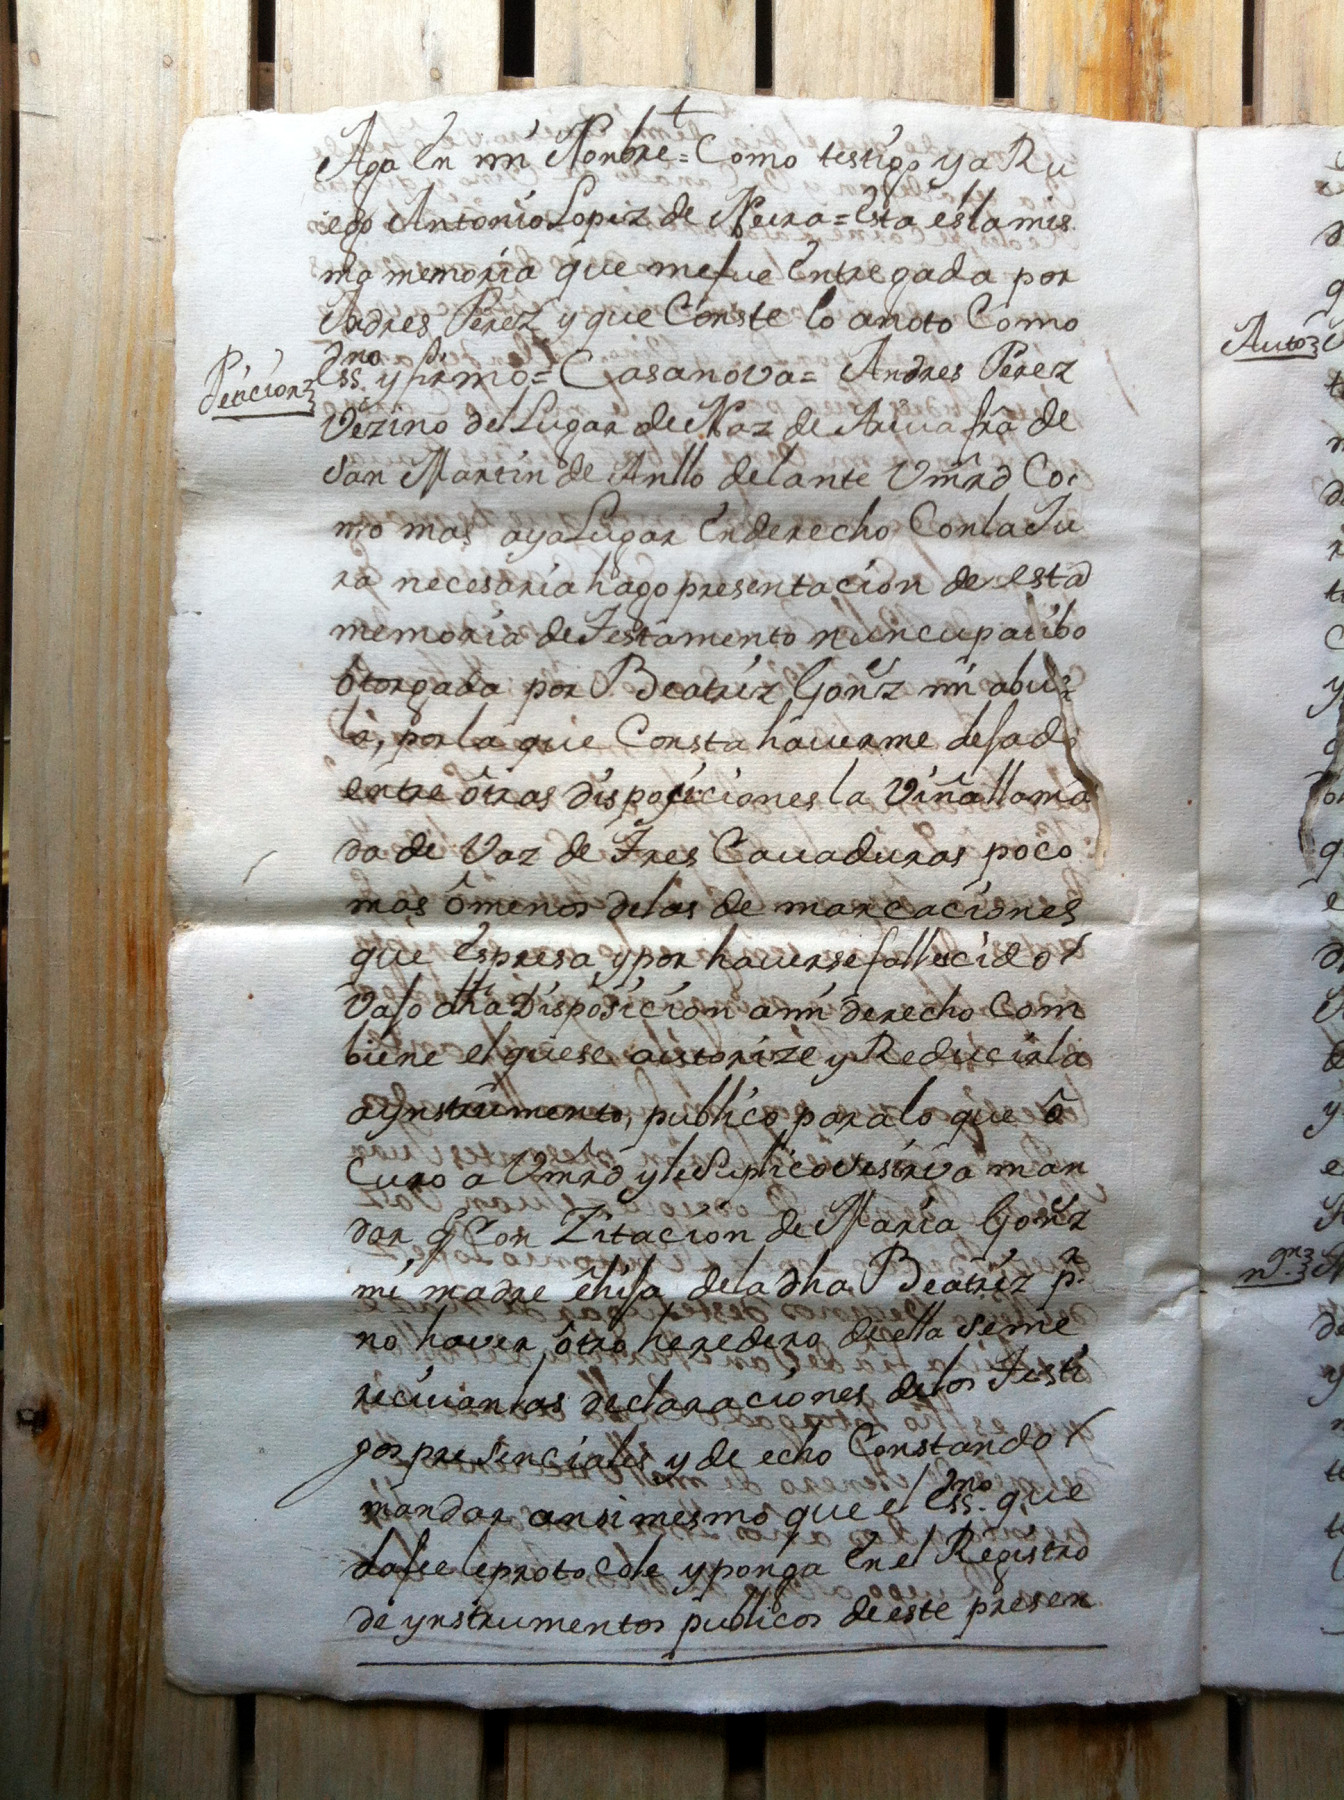 Aga En mi Nonbre = Como testigo y a Ru
iego Antonio Lopez de Neira = Esta es la mis
ma memoria que me fue Entregada por
Andres Perez y que Conste lo anoto Como
Essno y firmo = Casanova = Andres Perez
Peticion
Vezino del Lugar de Naz de Arriva fra de
San Martin de Anllo delante Vmrd Co
mo mas aya Lugar En derecho Con la Ju
ra necesaria hago presentacion de esta
memoria de Testamento nuncupatibo
ôtorgada por Beatriz Gonz mi abue
la, por la que Consta haverme dejado
entre ôtras disposiciones la Viña llama
da de Vaz de Tres Cavaduras poco
mas ômenos de las demarcaciones
que Espresa, y por haverse fallecido
Vajo dha Disposicion a mi derecho Com
biene el que se autorize y Reducirla
a ynstrumento, publico para lo que ô
Curo a Vmrd y le Suplico se sirva man
dar q Con Zitacion de Maria Gonz
mi madre êhija de la dha Beatriz pr
no haver ôtro heredero de ella se me
recivan las declaraciones de los Testi
gos presenciales y de echo Constando
mandar ansimesmo que el Essno que
da fee le protocole y ponga En el Registro
de ynstrumentos publicos de este presen
Auto